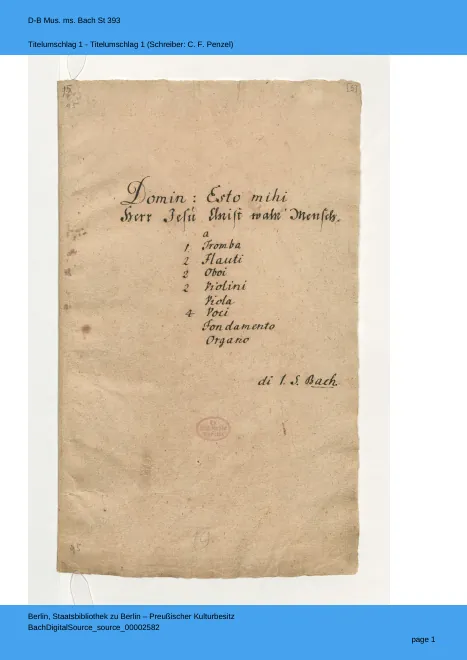 D-B Mus. ms. Bach St 393
Titelumschlag 1 - Titelumschlag 1 (Schreiber: C. F. Penzel)
Domin: Esto mihi
Herr Jesu Christ wahr' Mensch.
a
1 Tromba
2 Flauti
2 Oboi
2 Violini
Viola
4 Voci
Fondamento
Organo
di I. S. Bach.
Berlin, Staatsbibliothek zu Berlin – Preußischer Kulturbesitz
BachDigitalSource_source_00002582
page 1